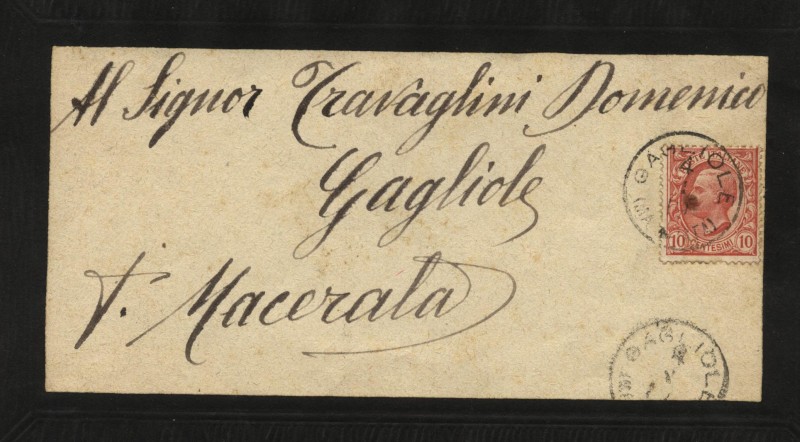 Al Signor Travaglini Domenico
Gagliole
P. Macerata
GAGLIOLE
10 10
CENTESIMI
GAGLIOLE